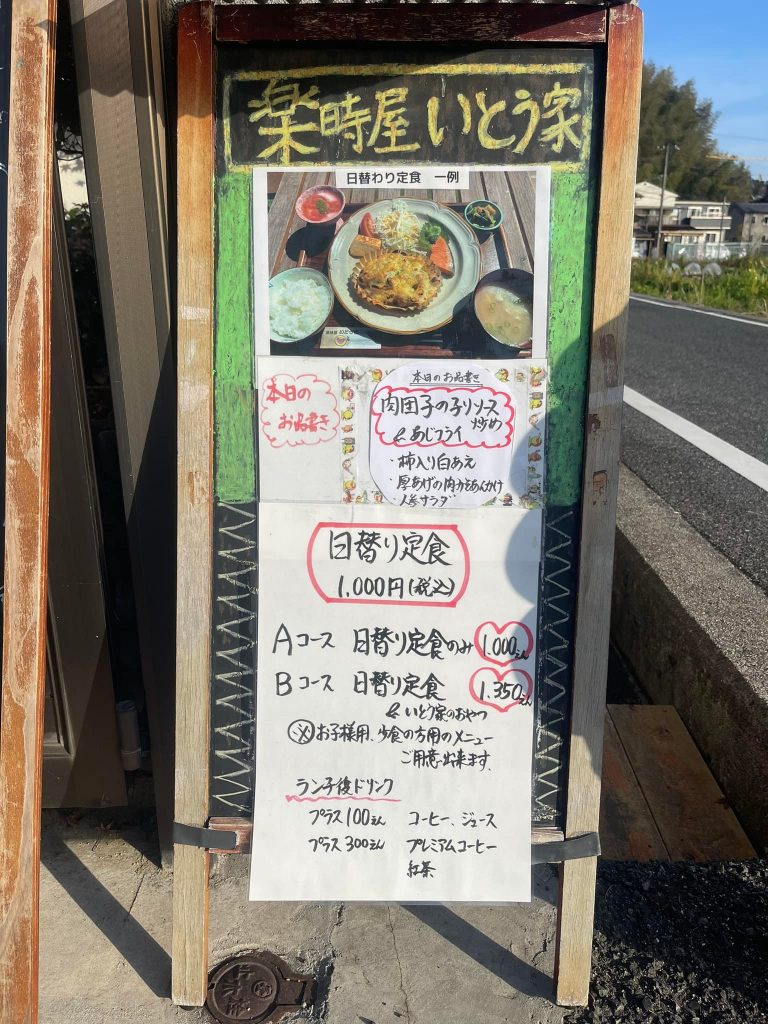 楽時屋 いとう家
日替わり定食 一例
本日の
お品書き
本日のお品書き
肉団子のチリソース
炒め
& あじフライ
・柿入り白あえ
・厚あげの肉みそあんかけ
・人参サラダ
日替り定食
1,000円(税込)
Aコース 日替り定食のみ 1.000えん
Bコース 日替り定食 1.350えん
& いとう家のおやつ
お子様用、少食の方用のメニュー
ご用意出来ます、
ランチ後ドリンク
プラス100えん コーヒー、ジュース
プラス300えん プレミアムコーヒー
紅茶